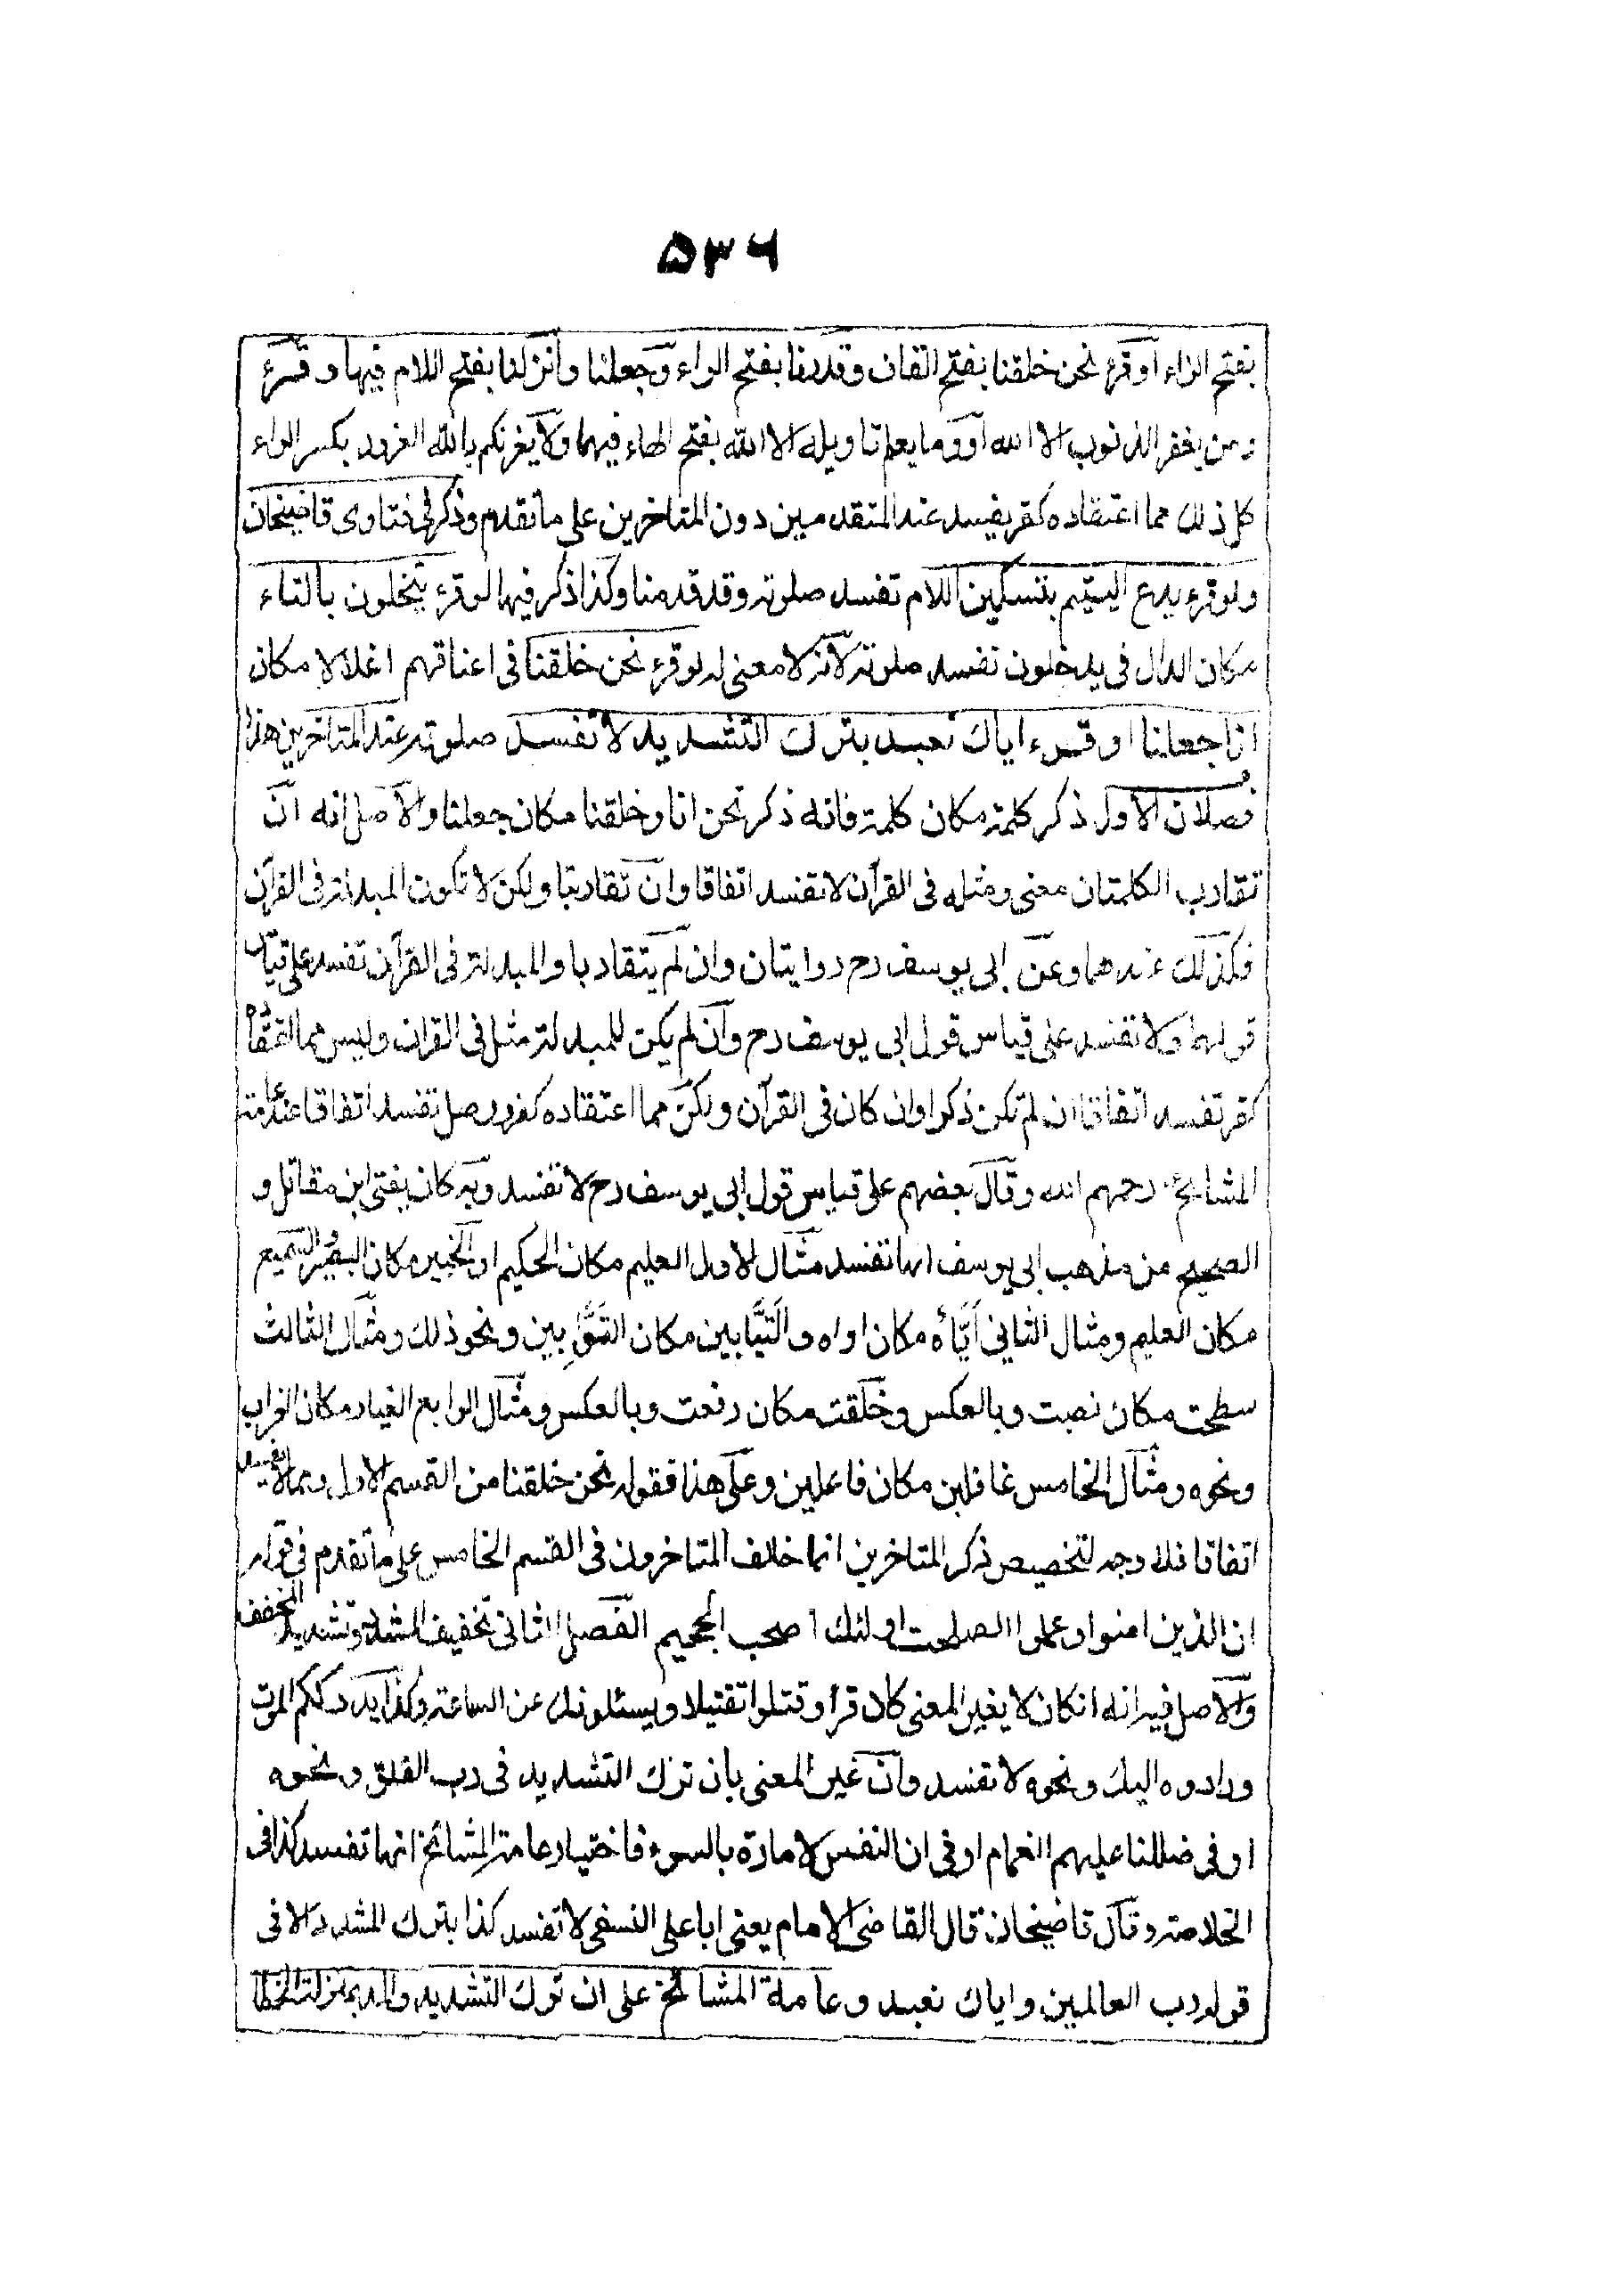 ۵۳۶
بفتح الراء أو قرء نحن خلقنا بفتح القاف وقدرنا بفتح الراء وجعلنا وأنزلنا بفتح اللام فيها وقرء
ومن يغفر الذنوب الا الله أو وما يعلم تاويله الا الله بفتح الهاء فيهما ولا يغرنكم بالله الغرور بكسر الراء
كل ذلك مما اعتقاده كفر يفسد عند المتقدمين دون المتاخرين على ما تقدم وذكر فى فتاوى قاضيخان
ولو قرء يدع اليتيم بتسكين اللام تفسد صلوته وقد قدمنا وكذا ذكر فيها لو قرء يتخلون بالتاء
مكان الدال فى يدخلون تفسد صلوته لانه لا معنى له لو قرء نحن خلقنا فى اعناقهم اغلالا مكان
انا جعلنا او قرء اياك نعبد بترك التشديد لا تفسد صلوته عند المتاخرين هذا
فصلان الأول ذكر كلمة مكان كلمة فانه ذكر نحن انا وخلقنا مكان جعلنا والاصل انه ان
تقارب الكلمتان معنى ومثله فى القرآن لا تفسد اتفاقا وان تقاربتا ولكن لا تكون المبدلة فى القرآن
فكذلك عندهما وعن ابى يوسف رح روايتان وان لم يتقاربا والمبدلة فى القرآن تفسد على قياس
قولهما ولا تفسد على قياس قول ابى يوسف رح وان لم يكن للمبدلة مثل فى القران وليس مما اعتقاده
كفر تفسد اتفاقا ان لم تكن ذكرا وان كان فى القرآن ولكن مما اعتقاده كفر ووصل تفسد اتفاقا عند عامة
المشايخ رحمهم الله وقال بعضهم على قياس قول ابى يوسف رح لا تفسد وبه كان يفتى ابن مقاتل و
الصحيح من مذهب ابى يوسف انها تفسد مثال الأول العليم مكان الحكيم او الخبير مكان البصير والسميع
مكان العليم ومثال الثانى أَيَّاه مكان اواه والتَيَّابين مكان التوَّابين ونحو ذلك ومثال الثالث
سطحت مكان نصبت وبالعكس وخلقت مكان رفعت وبالعكس ومثال الرابع الغبار مكان الغراب
ونحوه ومثال الخامس غافلين مكان فاعلين وعلى هذا فقوله نحن خلقنا من القسم الأول ومما لا يفسد
اتفاقا فلا وجه لتخصيص ذكر المتاخرين انما خالف المتاخرون فى القسم الخامس على ما تقدم فى قوله
ان الذين امنوا وعملوا الصلحت اولئك اصحب الجحيم الفصل الثانى تخفيف المشدد وتشديد المخفف
والاصل فيه انه ان كان لا يغير المعنى كان قرأ وقتلوا تقتيلا ويسئلونك عن الساعة وكذا يدرككم الموت
ورادوه اليك ونحوه لا تفسد وان غير المعنى بان ترك التشديد فى رب الفلق ونحوه
او فى ظللنا عليهم الغمام او فى ان النفس لامارة بالسوء فاختيار عامة المشائخ انها تفسد كذا فى
الخلاصة وقال قاضيخان قال القاضى الامام يعنى ابا على النسفى لا تفسد كذا بترك المشدد الا فى
قوله رب العالمين واياك نعبد وعامة المشائخ على ان ترك التشديد والمد بمنزلة الخطا